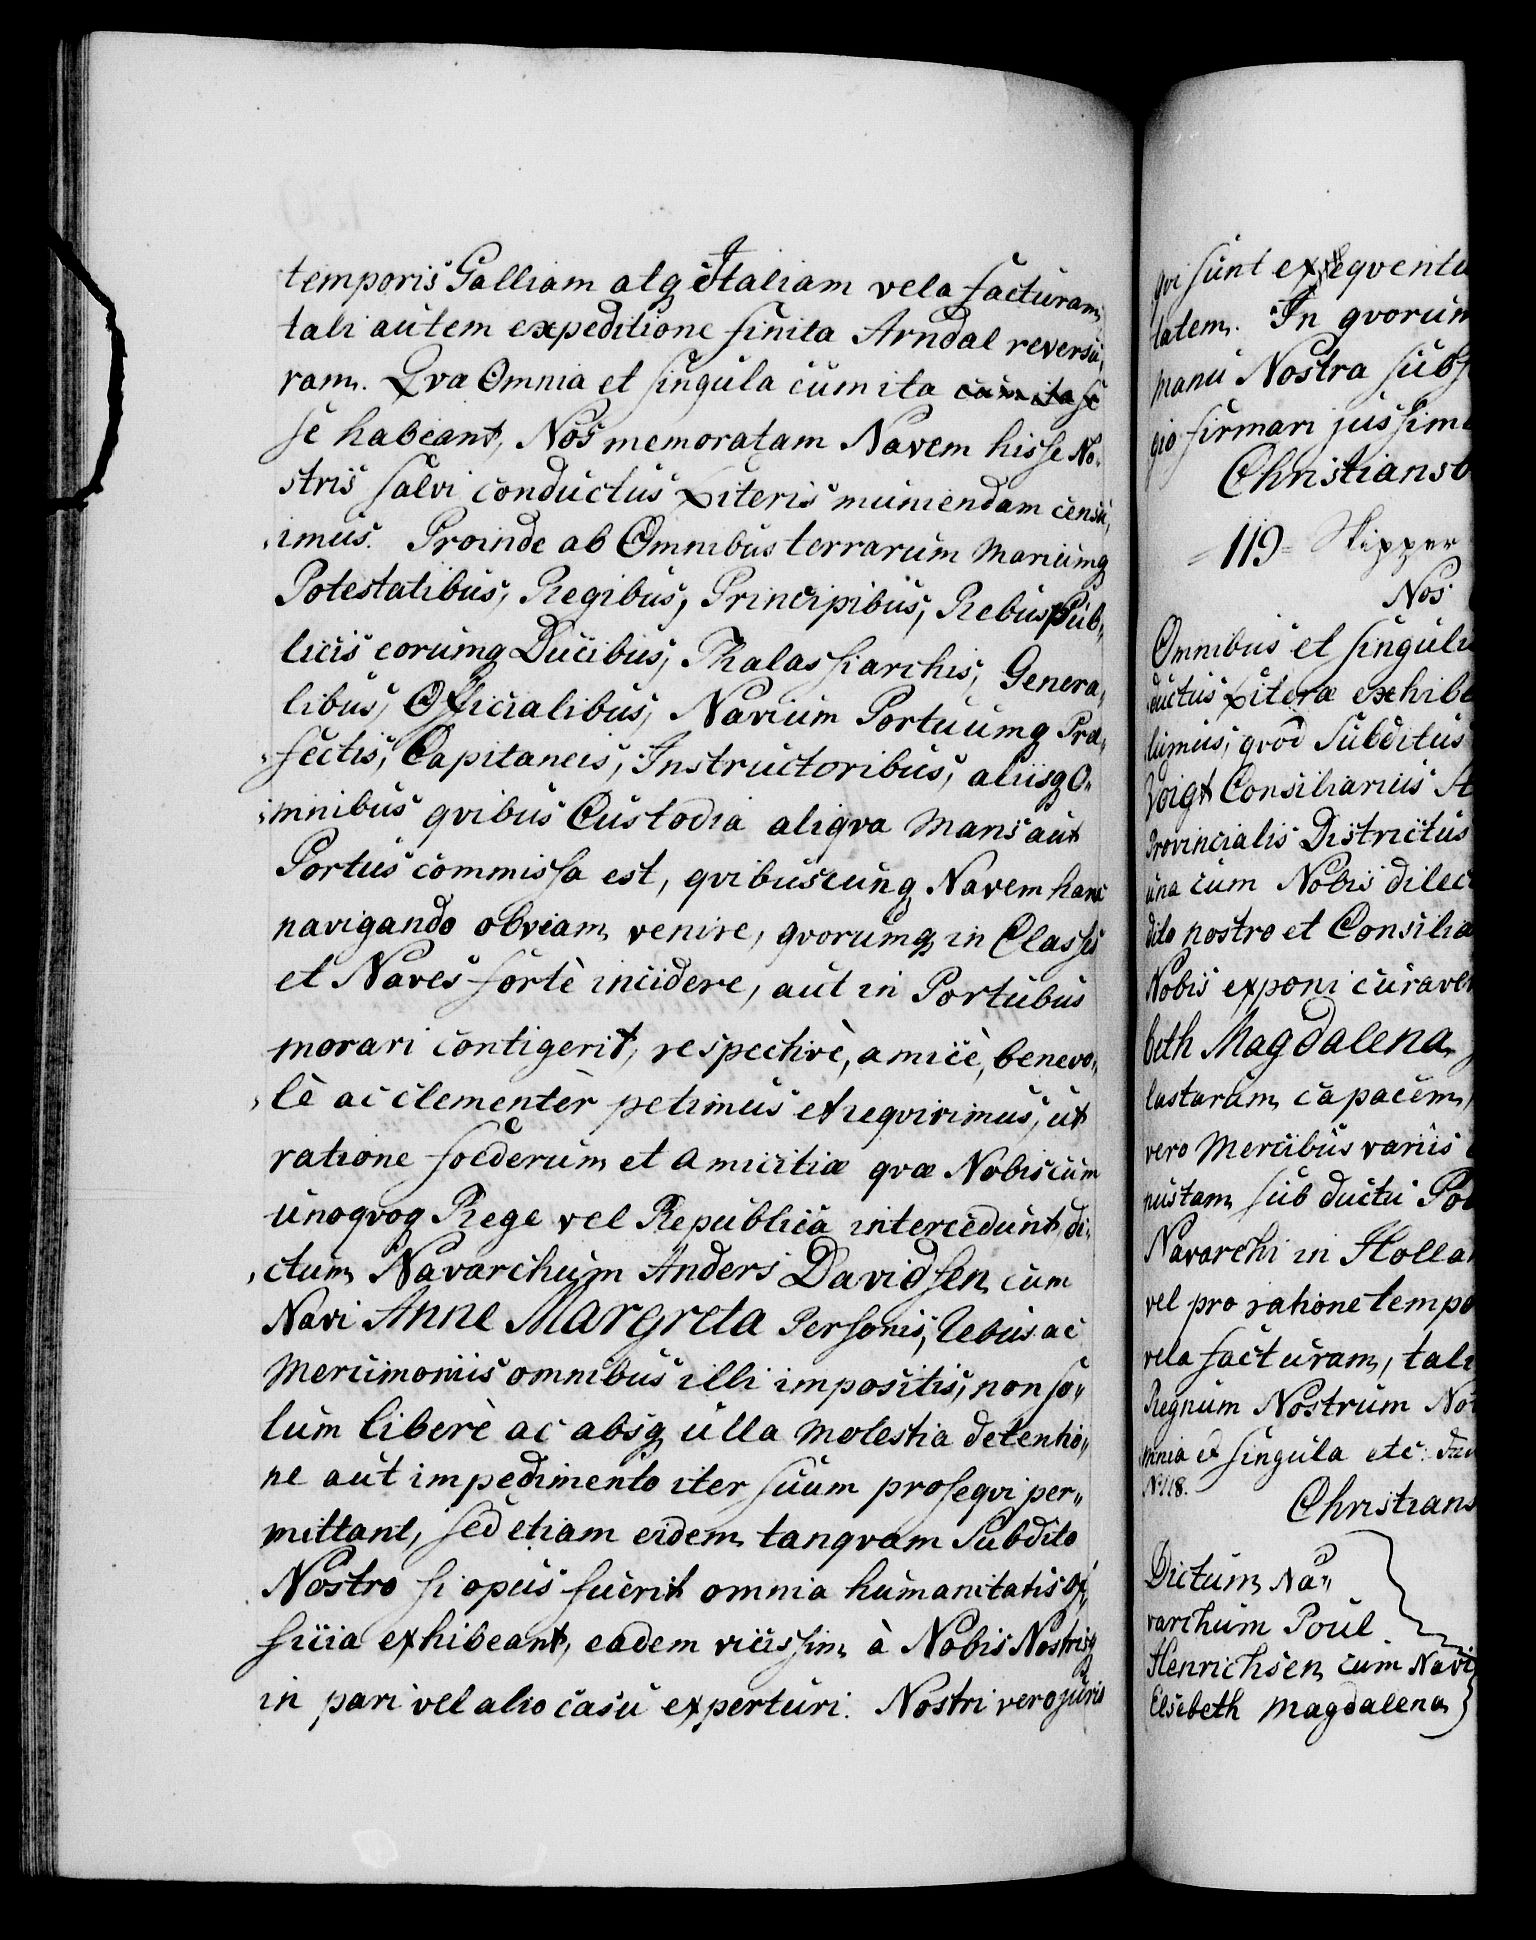 temporis Galliam atq Italiam vela facturam,
tali autem expeditione finita Arndal reversu,
ram. Qva Omnia et singula cum ita cum ita se
se habeant, Nos memoratam Navem hisse No,
stris salvi conductus Literis muniendam censu,
,imus. Proinde ab Omnibus terrarum Mariumq
Potestatibus, Regibus, Principibus, Rebuspub,,
licis eorumq Ducibus, Thalassiarchis, Genera,
libus, Officialibus, Navium Portuumq Præ,
,fectis, Capitaneis, Instructoribus, aliisq O,
,mnibus qvibus Custodia aliqva Maris aut
Portus commissa est, qvibuscunq Navem hanc
navigando obviam venire, qvorumq in Classes
et Naves fortè incidere, aut in Portubus
morari contigerit, respectivè, amicè, benevo,,
,lè ac clementèr petimus et reqvirimus, ut
ratione foederum et Amicitiæ qvæ Nobis cum
unoqvoq Rege vel Republica intercedunt, di,
,ctum Navarchum Anders Davidsen cum
Navi Anne Margreta Personis, Rebus ac
Mercimoniis omnibus illi impositis, non so,,
lum liberè ac absq ulla Molestia detentio,,
ne aut impedimento iter suum proseqvi per,,
mittant, sed etiam eidem tanqvam Subdito
Nostro si opus fuerit omnia humanitatis of,
ficia exhibeant, eadem vicissim à Nobis Nostrisq
in pari vel alio casu experturi. Nostri vero juris
qvi sunt exseqventu
tatem. In qvorum
manu Nostra subs
gio firmari jussim
Christiansb
=119= Skipper
Nos
Omnibus et singuli
ductus Literæ exhibe
lumus, qvod Subditus
Voigt Consiliarius
Provincialis Districtus
una cum Nobis dilec
dito nostro et Consilia
Nobis exponi curaver
beth Magdalena
lastarum capacem,
vero Mercibus variis
nustam, sub ductu Po
Navarchi in Hollan
vel pro ratione tempo
vela facturam, tali
Regnum Nostrum Nor
mnia et singula etc.
No 118.
Christians
Dictum Na,,
varchum Poul
Henrichsen, cum Navi
Elsebeth Magdalena